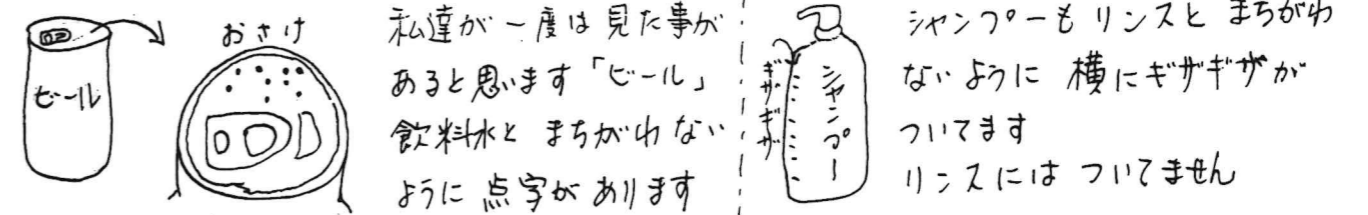 ビール
おさけ
私達が一度は見た事が
あると思います「ビール」
飲料水と まちがわない
ように 点字があります
ギザギザ
シャンプー
シャンプーも リンスと まちがわ
ないように 横にギザギザが
ついてます
リンスには ついてません